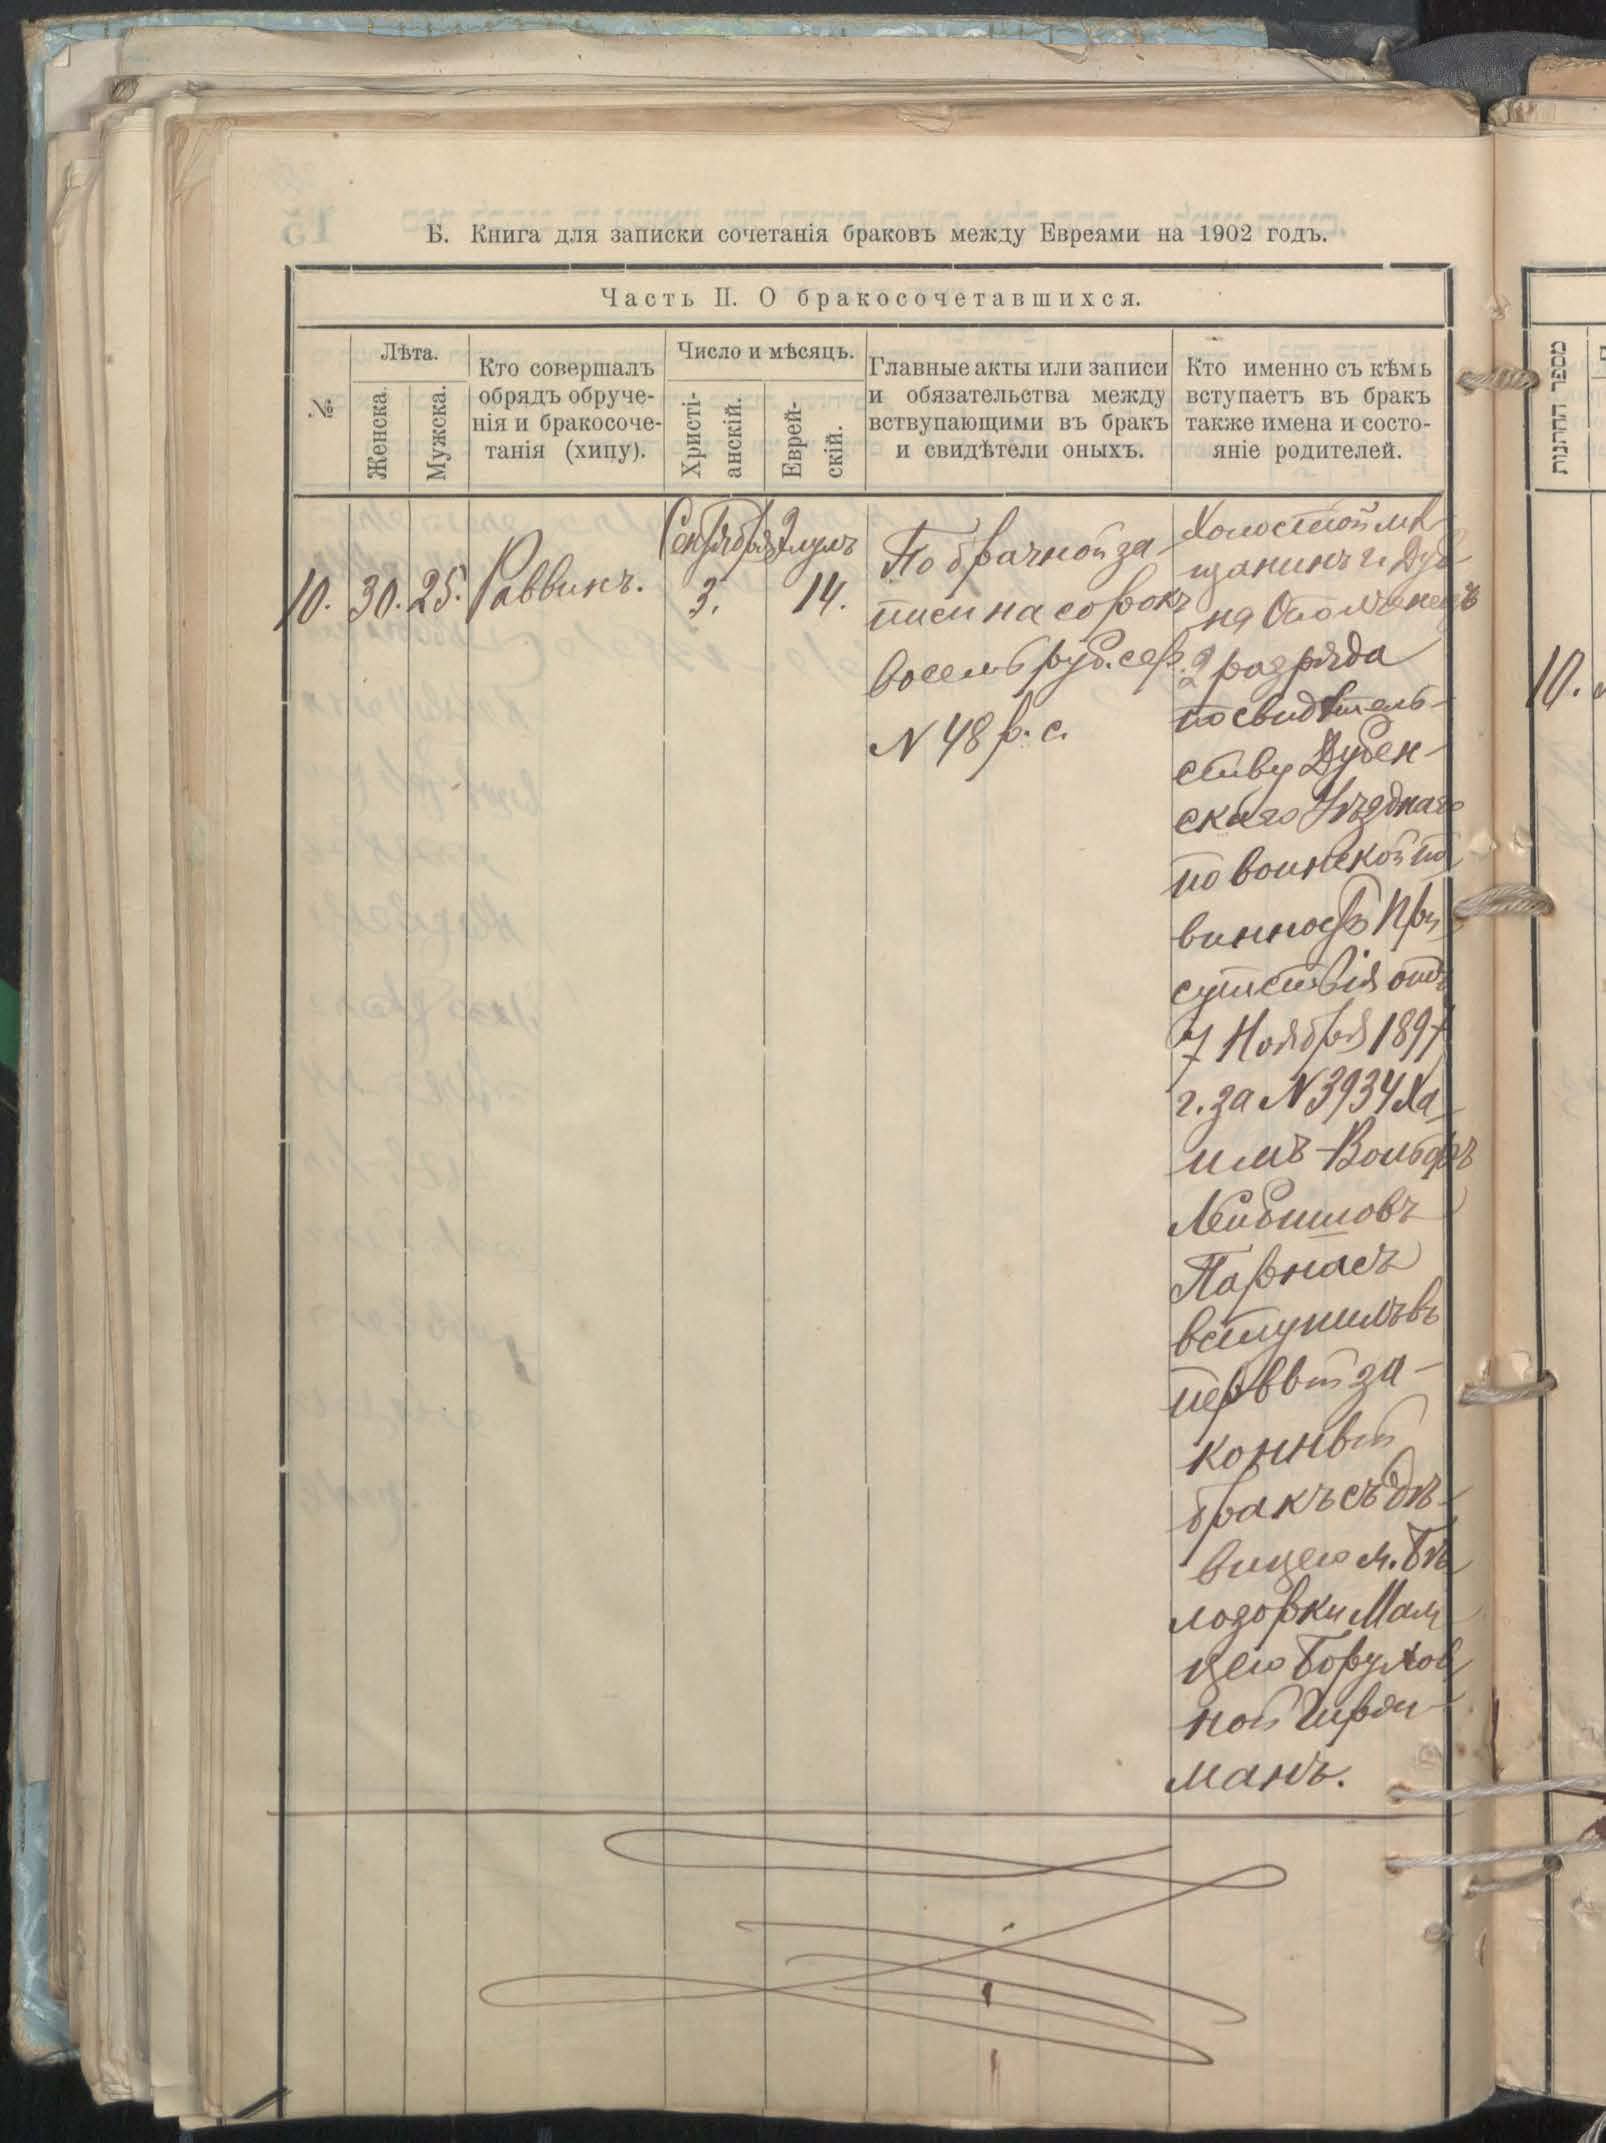 Б. Книга для записки сочетанія браковъ между Евреями на 1902 годъ.
Часть II. О бракосочетавшихся.
№.
Лѣта.
Женска.
Мужска.
Кто совершалъ
обрядъ обруче-
нія и бракосоче-
танія (хипу).
Число и мѣсяцъ.
Христі-
анскій.
Еврей-
скій.
Главные акты или записи
и обязательства между
вступающими въ бракъ
и свидѣтели оныхъ.
Кто именно съ кѣмъ
вступаетъ въ бракъ
также имена и состо-
яніе родителей.
10.
30.
25.
Раввинъ.
Сентября
3.
Элулъ
14.
По брачной за-
писи на сорокъ
восемь руб. сер.
N 48 р. с.
Холостой мѣ-
щанинъ г. Дуб-
на Ополченецъ
2 разряда
по свидѣтель-
ству Дубен-
скаго Уѣзднаго
по воинской по-
винности При-
сутствія отъ
7 Ноября 1897
г. за N 3934 Ха-
имъ-Вольфъ
Лейбишовъ
Парнасъ
вступилъ въ
первый за-
конный
бракъ съ дѣ-
вицею м. Бѣ-
лозорки Мал-
цею Борухов-
ной
манъ.
מספר החתונות
10.